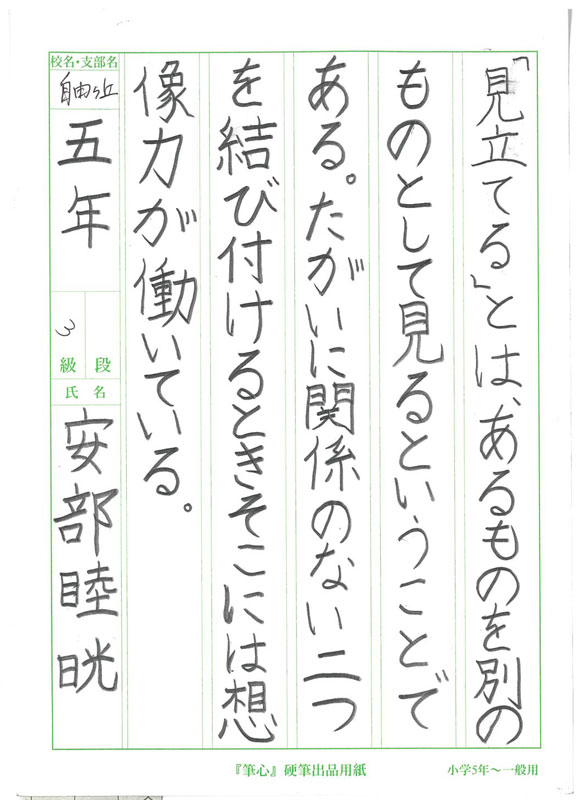 「見立てる」とは、あるものを別の
ものとして見るということで
ある。たがいに関係のない二つ
を結び付けるときそこには想
像力が働いている。
校名・支部名
自由ヶ丘
五年
段
3級
氏名
安部睦晄
『筆心』硬筆出品用紙
小学5年～一般用